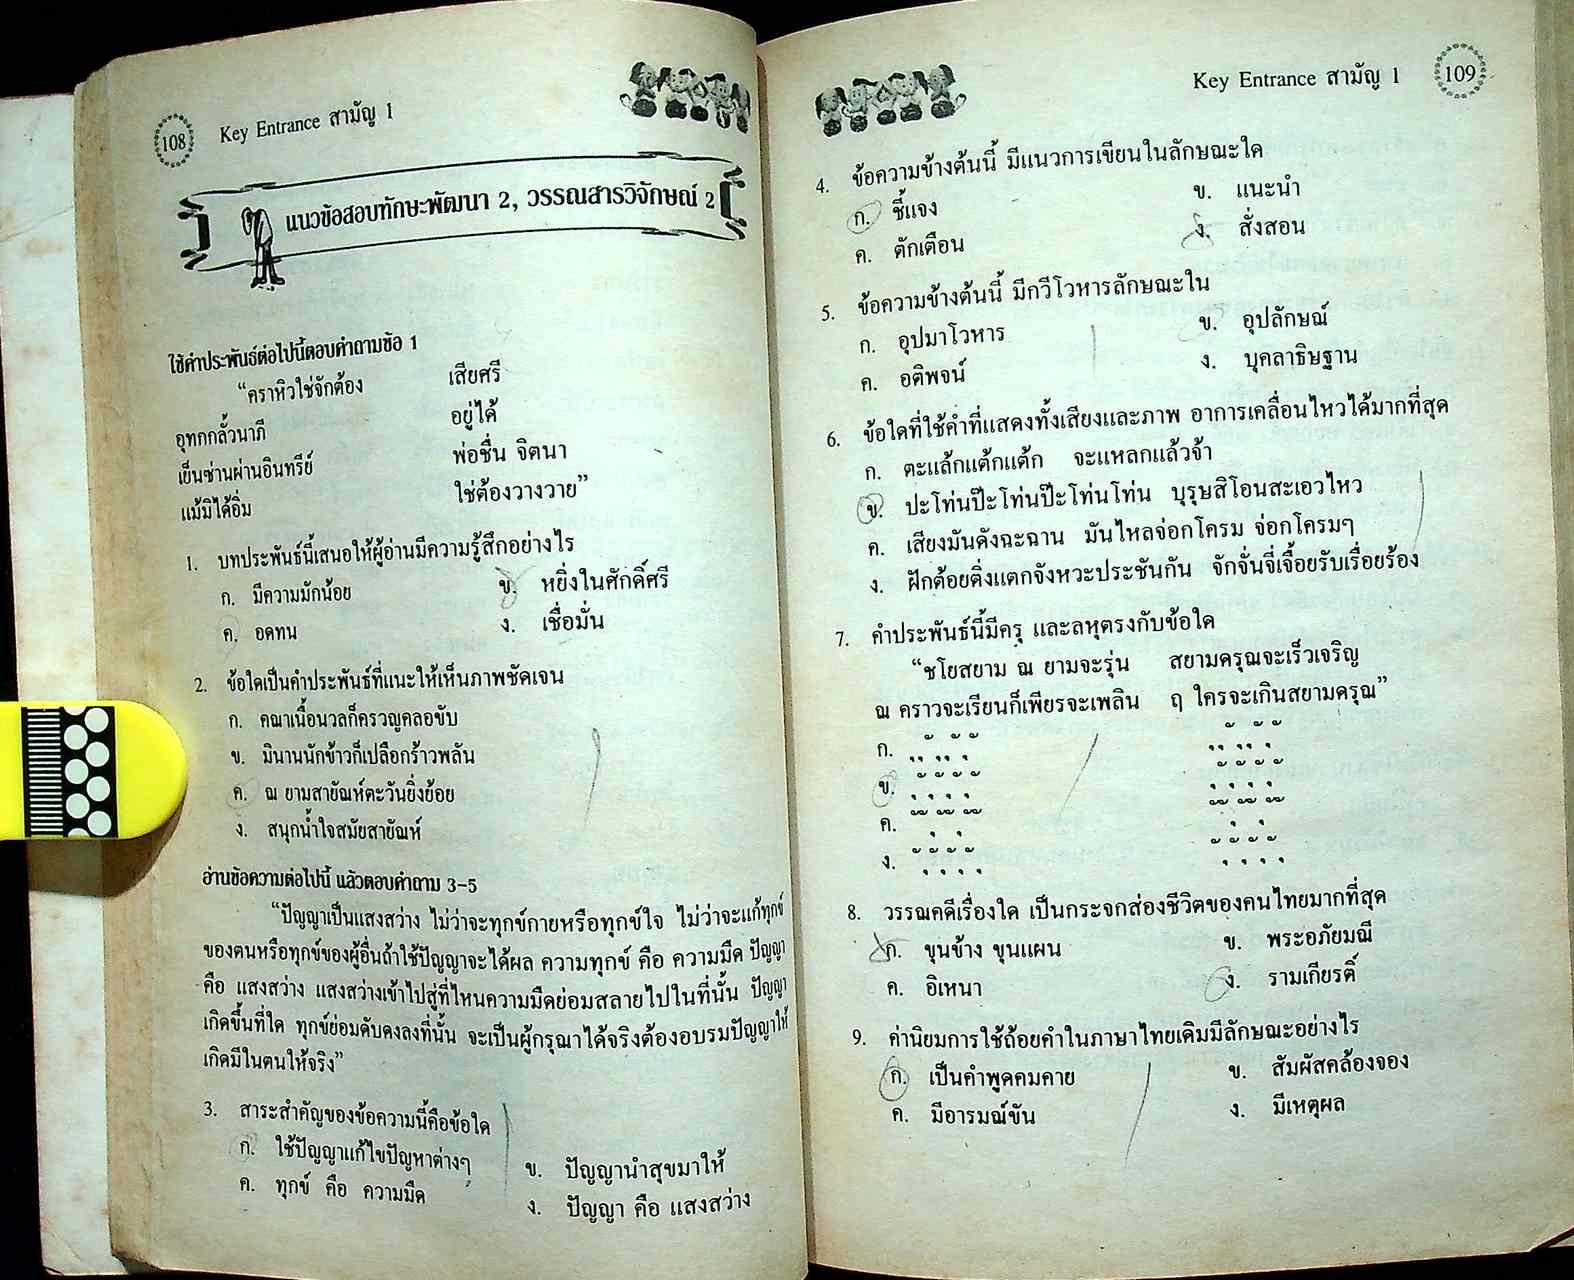 108 Key Entrance สามัญ 1
แนวข้อสอบทักษะพัฒนา 2, วรรณสารวิจักษณ์ 2
ใช้คำประพันธ์ต่อไปนี้ตอบคำถามข้อ 1
“คราหิวใช่จักต้อง เสียศรี
อุทกกลั้วนาภี อยู่ได้
เย็นซ่านผ่านอินทรีย์ พ่อชื่น จิตนา
แม้มิได้อิ่ม ใช่ต้องวางวาย”
1. บทประพันธ์นี้เสนอให้ผู้อ่านมีความรู้สึกอย่างไร
ก. มีความมักน้อย ข. หยิ่งในศักดิ์ศรี
ค. อดทน ง. เชื่อมั่น
2. ข้อใดเป็นคำประพันธ์ที่แนะให้เห็นภาพชัดเจน
ก. คณาเนื้อนวลก็ครวญคลอขับ
ข. มินานนักข้าวก็เปลือกร้าวพลัน
ค. ณ ยามสายัณห์ตะวันยิ่งย้อย
ง. สนุกน้ำใจสมัยสายัณห์
อ่านข้อความต่อไปนี้ แล้วตอบคำถาม 3-5
“ปัญญาเป็นแสงสว่าง ไม่ว่าจะทุกข์กายหรือทุกข์ใจ ไม่ว่าจะแก้ทุกข์
ของตนหรือทุกข์ของผู้อื่นถ้าใช้ปัญญาจะได้ผล ความทุกข์ คือ ความมืด ปัญญา
คือ แสงสว่าง แสงสว่างเข้าไปสู่ที่ไหนความมืดย่อมสลายไปในที่นั้น ปัญญา
เกิดขึ้นที่ใด ทุกข์ย่อมดับดงลงที่นั้น จะเป็นผู้กรุณาได้จริงต้องอบรมปัญญาให้
เกิดมีในตนให้จริง”
3. สาระสำคัญของข้อความนี้คือข้อใด
ก. ใช้ปัญญาแก้ไขปัญหาต่างๆ ข. ปัญญานำสุขมาให้
ค. ทุกข์ คือ ความมืด ง. ปัญญา คือ แสงสว่าง
Key Entrance สามัญ 1 109
4. ข้อความข้างต้นนี้ มีแนวการเขียนในลักษณะใด
ก. ชี้แจง ข. แนะนำ
ค. ตักเตือน ง. สั่งสอน
5. ข้อความข้างต้นนี้ มีกวีโวหารลักษณะใน
ก. อุปมาโวหาร ข. อุปลักษณ์
ค. อติพจน์ ง. บุคลาธิษฐาน
6. ข้อใดที่ใช้คำที่แสดงทั้งเสียงและภาพ อาการเคลื่อนไหวได้มากที่สุด
ก. ตะแล้กแต้กแต้ก จะแหลกแล้วจ้า
ข. ปะโท่นป๊ะโท่นป๊ะโท่นโท่น บุรุษสิโอนสะเอวไหว
ค. เสียงมันดังฉะฉาน มันไหลจ่อกโครม จ่อกโครมๆ
ง. ฝักต้อยติ่งแตกจังหวะประชันกัน จักจั่นจี่เจื้อยรับเรื่อยร้อง
7. คำประพันธ์นี้มีครุ และลหุตรงกับข้อใด
“ชโยสยาม ณ ยามจะรุ่น สยามดรุณจะเร็วเจริญ
ณ คราวจะเรียนก็เพียรจะเพลิน ฤ ใครจะเกินสยามดรุณ”
ก.
ข.
ค.
ง.
8. วรรณคดีเรื่องใด เป็นกระจกส่องชีวิตของคนไทยมากที่สุด
ก. ขุนช้าง ขุนแผน ข. พระอภัยมณี
ค. อิเหนา ง. รามเกียรติ์
9. ค่านิยมการใช้ถ้อยคำในภาษาไทยเดิมมีลักษณะอย่างไร
ก. เป็นคำพูดคมคาย ข. สัมผัสคล้องจอง
ค. มีอารมณ์ขัน ง. มีเหตุผล